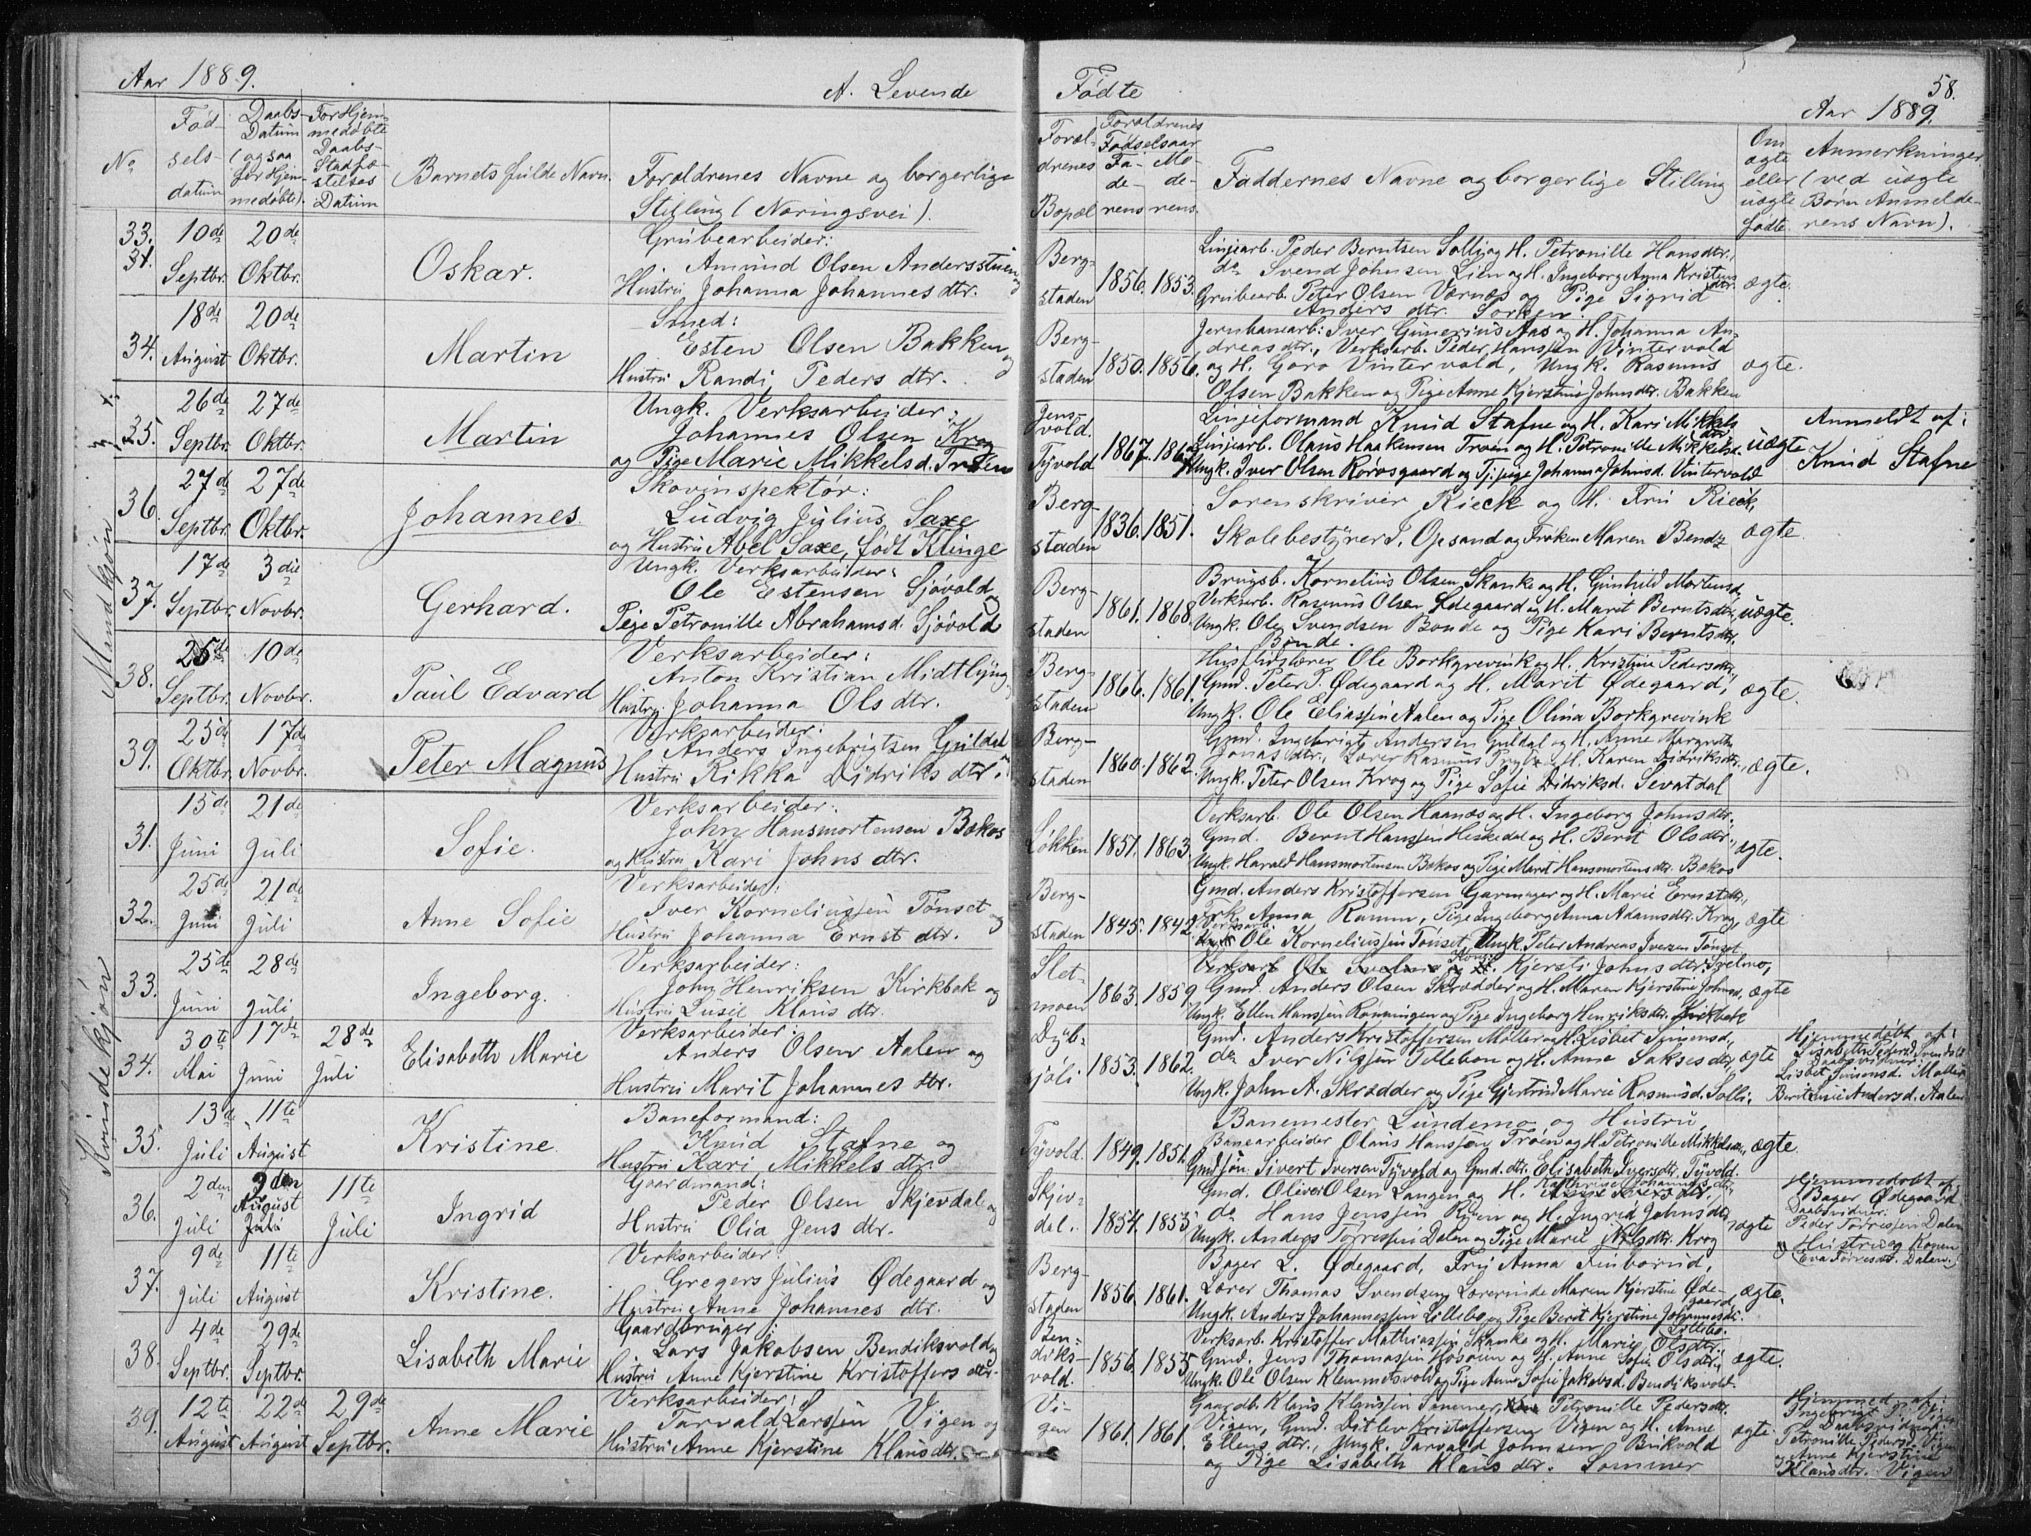 Aar 1889.
A. Levende
Fødte
58.
Aar 1889.
No
Fød-
sels-
datum
Daabs-
Datum
(ogsaa
for Hjem-
medøbte).
For Hjem-
medøbte
Daabs-
Stadfæ-
stelses
Datum
Barnets fulde Navn.
Forældrenes Navne og borgerlige
Stilling (Næringsvei).
Foræl-
drenes
Bopæl
Forældrenes
Fødselsaar
Fa-
de-
rens
Mo-
de-
rens.
Faddernes Navne og borgerlige Stilling
Om
ægte
eller
uægte
fødte
Anmerkninger
(ved uægte
Børn Anmelde-
rens Navn).
Mandkjøn
33.
31.
10de
Septbr.
20de
Oktbr.
Oskar.
Grubearbeider:
Amund Olsen Andersstuen og
Hustru Johanna Johannes dtr.
Berg-
staden
1856. 1853.
Linjearb. Peder Berntsen Solli og H. Petronille Hansdtr.,
do Svend Johnsen Lien og H. Ingeborg Anna Kristens
dtr.
Grubearb. Peter Olsen Værnæs og Pige Sigrid
Anders dtr. Sorken.
ægte.
34.
18de
August
20de
Oktbr.
Martin
Smed:
Esten Olsen Bakken og
Hustru Randi Peders dtr.
Berg-
staden
1850. 1856.
Jernbanearb: Iver Gunerius Aas og H. Johanna An-
dreas dtr., Verksarb. Peder Hanssen Vintervold
og H. Goro Vintervold, Ungk. Rasmus
Olsen Bakken og Pige Anne Kjerstine Johnsdtr. Bakken
ægte.
35.
26de
Septbr.
27de
Oktbr.
Martin
Ungk. Verksarbeider:
Johannes Olsen Krog
og Pige Marie Mikkelsd. Trøen
Jens-
vold.
Tyvold
1867.
Linjeformand Knud Stafne og H. Kari Mikkels
dtr.
Linjearb. Olaus Haakensen Trøen og H. Petronille Mikkelsd.
Ungk. Iver Olsen Korosgaard og Tj. pige Johanna Johnsd. Vintervold
uægte
Anmeldt af:
Knud Stafne
36.
27de
Septbr.
27de
Oktbr.
Johannes.
Skovinspektør:
Ludvig Julius Saxe
og Hustru Abel Saxe, født Klinge
Berg-
staden
1836. 1851.
Sorenskriver Rieck og H. Fru Rieck,
Skolebestyrer J. Opsand og Frøken Maren Bendz
ægte.
37.
17de
Septbr.
3die
Novbr.
Gerhard.
Ungk. Verksarbeider:
Ole Estensen Sjøvold og
Pige Petronille Abrahamsd. Sjøvold
Berg-
staden
1861. 1868.
Brugsb. Kornelius Olsen Skanke og H. Gunhild Mortensd.
Verksarb. Rasmus Olsen Ødegaard og H. Marit Berntsdtr.
Ungk. Ole Svendsen Bonde og Pige Kari Berntsdtr.
Bonde.
uægte.
38.
25de
Septbr.
10de
Novbr.
Paul Edvard
Verksarbeider:
Anton Kristian Midtlyng og
Hustru Johanna Ols dtr.
Berg-
staden
1866. 1861.
Husflidslærer Ole Borkgrevink og H. Kristine Pedersdtr.
Gmd. Peter P. Ødegaard og H. Marit Ødegaard,
Ungk. Ole Eliassen Aalen og Pige Olina Borkgrevink
ægte.
39.
25de
Oktbr.
17de
Novbr.
Peter Magnus
Verksarbeider:
Anders Ingebrigtsen Guldal og
Hustru Rikka Didriks dtr.
Berg-
staden
1860. 1862.
Gmd. Ingebrigt Andersen Guldal og H. Anne Margrethe
Jonas dtr., Lærer Rasmus Prytz og H. Karen Didriksdtr.,
Ungk. Peter Olsen Krog og Pige Sofie Didriksd. Sevatdal
ægte.
Kvindekjøn
31.
15de
Juni
21de
Juli
Sofie.
Verksarbeider:
John Hansmortensen Bakos
og Hustru Kari Johns dtr.
Løkken
1851. 1863.
Verksarb. Ole Olsen Haanæs og H. Ingeborg Johnsdtr.
Gmd. Bernt Hanssen Heskedal og H. Berit Olsdtr.,
Ungk. Harald Hansmortensen Bakos og Pige Marit Hansmortensdtr. Bakos
ægte.
32.
25de
Juni
21de
Juli
Anne Sofie
Verksarbeider:
Iver Korneliussen Tønset og
Hustru Johanna Ernst dtr.
Berg-
staden
1845. 1842.
Gmd. Anders Kristoffersen Garmager og H. Marie Ernstdtr.,
Frk. Anna Ramm, Pige Ingeborg Anna Adamsdtr. Krog,
Verksarb.
Ole Korneliussen Tønset, Ungk. Peter Andreas Iversen Tønset
ægte
33.
25de
Juni
28de
Juli
Ingeborg.
Verksarbeider:
John Henriksen Kirkbak og
Hustru Lusie Klaus dtr.
Slet-
moen
1863. 1859.
Verksarb. Ole Svelmo og H. Kjersti Johns dtr. Svelmo,
Gmd. Anders Olsen Skrædder og H. Maren Kjerstine Johnsd.,
Ungk. Ellen Hanssen Rønningen og Pige Ingeborg Henriksdtr. Kirkbak
ægte
34.
30te
Mai
17de
Juni
28de
Juli
Elisabeth Marie
Verksarbeider:
Anders Olsen Aalen og
Hustru Marit Johannes dtr.
Dyb-
sjøli
1853. 1862.
Gmd. Anders Kristoffersen Møller og H. Lisbet Simensd.,
do Iver Nilssen Tillebon og H. Anne Sakses dtr,
Ungk. John A. Skrædder og Pige Gjertrud Marie Rasmusd. Solli.
ægte
Hjemmedøbt af:
Daabsvidner:
Lisbet Simensd. Møller
Berit Lusie Andersd. Aalen
35.
13de
Juli
11te
August
Kristine.
Baneformand:
Knud Stafne og
Hustru Kari Mikkels dtr.
Tyvold.
1849. 1851.
Banemester Lundemo og Hustru,
Banearbeider Olaus Hanssen Trøen og H. Petronille Mikkelsdtr.,
Gmdsøn Sivert Iversen Tyvold og Gmd. dtr. Elisabeth Iversdtr. Tyvold.
ægte.
36.
2den
Juli
2den
August
Juli
11te
Juli
Ingrid
Gaardmand:
Peder Olsen Skjevdal og
Hustru Olia Jens dtr.
Skjev-
dal.
1854. 1855.
Gmd. Oliver Olsen Langen og H. Kathrine Johannesdtr.
do Hans Jenssen Ryen og H. Ingrid Johnsdtr
Ungk. Anders Torressen Dalen og Pige Marie Nilsdtr. Krog
ægte
Hjemmedøbt af
Bager Ødegaard
Daabsvidner:
Peder Torressen Dalen
Hustru og Konen
Eva Torresdtr. Dalen.
37.
9de
Juli
11te
August
Kristine.
Verksarbeider:
Gregers Julius Ødegaard og
Hustru Anne Johannes dtr.
Berg-
staden
1856. 1861.
Bager L. Ødegaard, Fru Anna Finborud,
Lærer Thomas Svendsen, Lærerinde Maren Kjerstine Øde-
gaard
Ungk. Anders Johannessen Lillebo og Pige Berit Kjerstine Johannesdtr.
Lillebo.
ægte.
38.
4de
Septbr.
29de
Septbr.
Lisabeth Marie
Gaardbruger:
Lars Jakobsen Bendiksvold og
Hustru Anne Kjerstine Kristoffers dtr.
Ben-
diks-
vold
1856. 1855.
Verksarb. Kristoffer Mathiassen Skanke og H. Marie Olsdtr.
Gmd. Jens Thomassen Mosøen og H. Anne Sofie Olsdtr.,
Ungk. Ole Olsen Klemmesvold og Pige Anne Sofie Jakobsd. Bendiksvold.
ægte.
39.
12te
August
22de
August
29de
Septbr.
Anne Marie
Verksarbeider:
Tarvald Larssen Vigen og
Hustru Anne Kjerstine Klaus dtr.
Vi-
gen
1861. 1861.
Gaardb. Klaus Klaussen Sommer, Petronille Pedersdtr.
Vigen, Gmd. Ditlev Kristoffersen Vigen og H. Anne
Ellens dtr., Ungk. Tarvald Johnsen Bukvold
og Pige Lisabeth Klaus dtr. Sommer
ægte.
Hjemmed. af:
Ingebrigt P. Vigen
Daabsvidner:
Petronille Peders. Vigen
og Anne Kjerstine
Klausdtr. Vigen